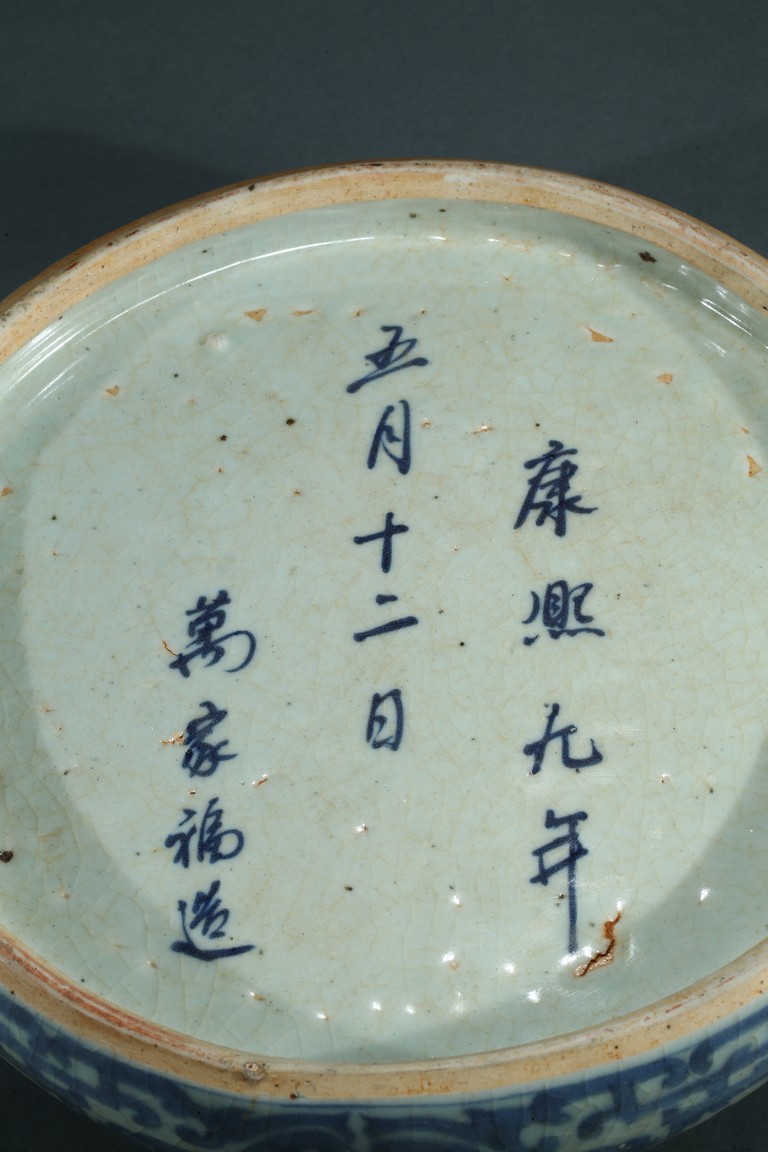 康熈九年
五月十二日
萬家福造